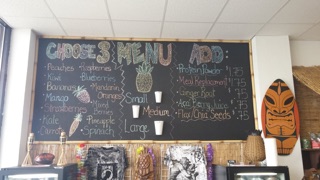 CHOOSE 3 MENU ADD:
Peaches Raspberries
Kiwi Blueberries
Bananas Mandarin
Mango Oranges
Strawberries Mixed Berries
Kale Pineapple
Spinach
Small
Medium
Large
Protein Powder .75
Meal Replacement
Ginger Root
Acai Berry Juice .75
Flax/Chia Seeds .75